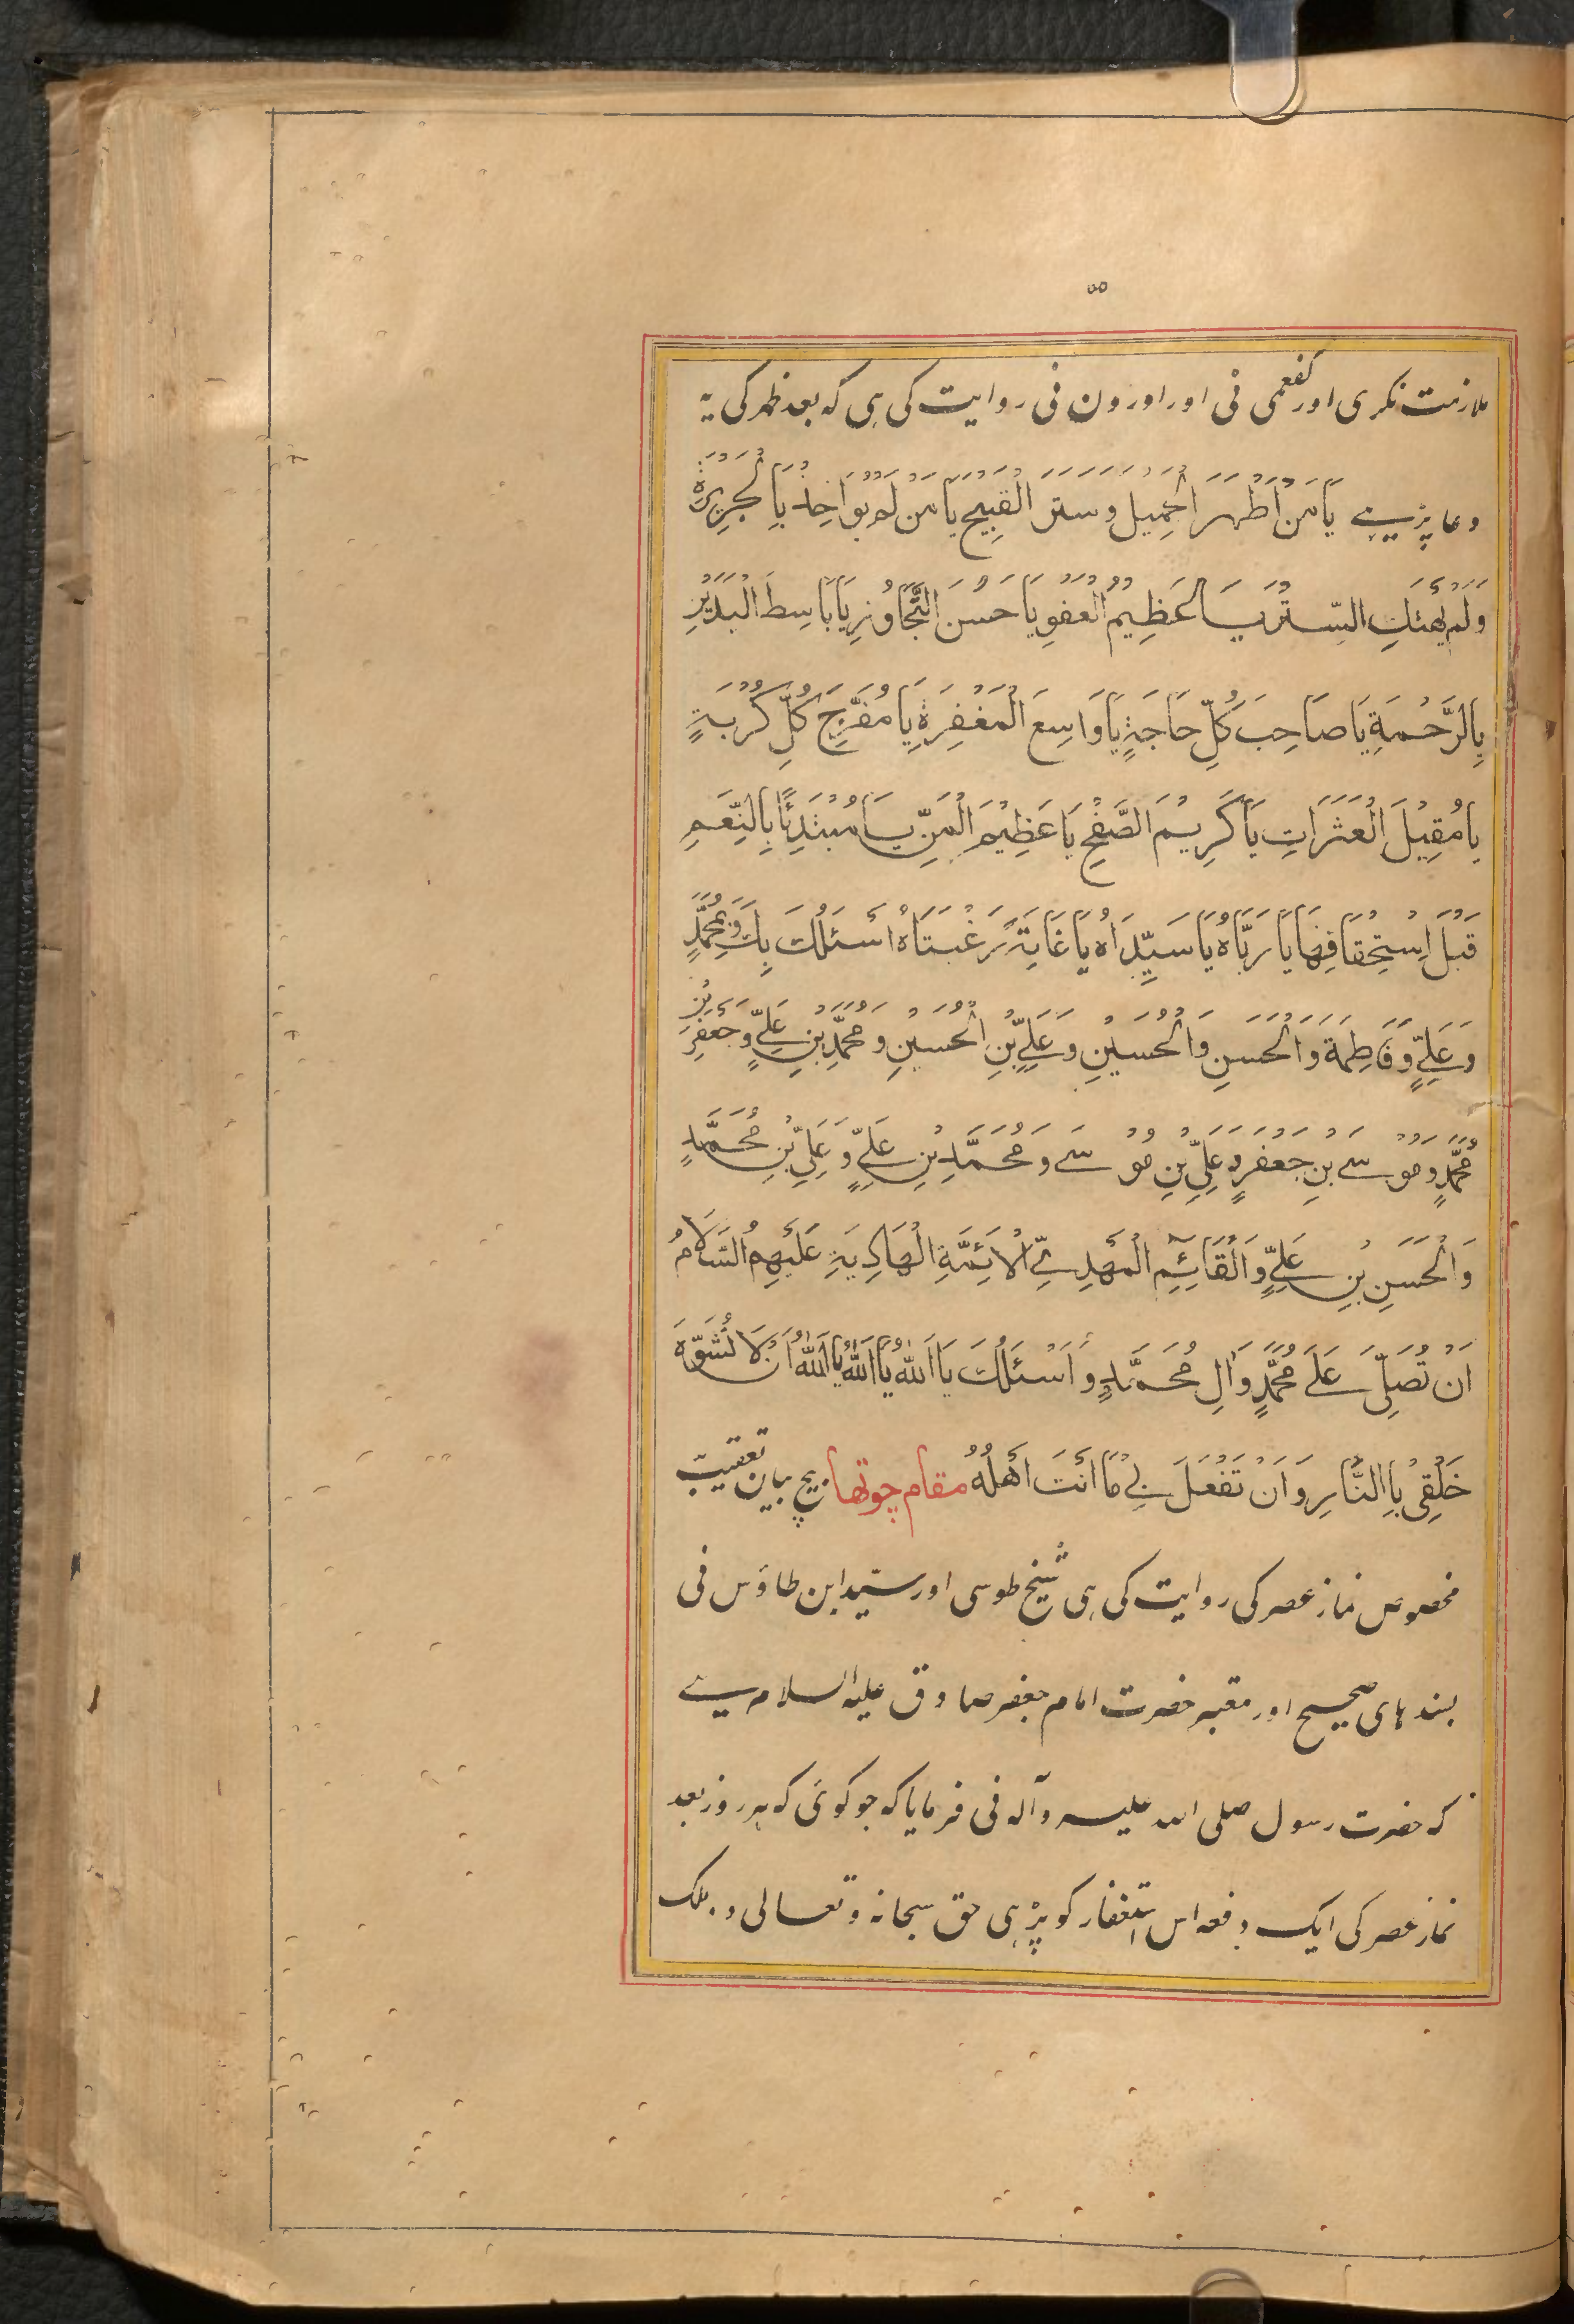 ۵۵
ملازمت نکری اور کفعمی فی اور اورون فی روایت کی ہی کہ بعد ظہر کی یہ
دعا پڑہیے یَا مَنْ اَظْهَرَ الْجَمِیْلَ وَسَتَرَ الْقَبِیْحَ یَا مَنْ لَمْ یُوَاخِذْ بِالْجَرِیْرَةِ
وَلَمْ یَهْتِكِ السِّتْرَ یَا عَظِیْمُ الْعَفْوِ یَا حَسَنَ التَّجَاوُزِ یَا بَاسِطَ الْیَدَیْنِ
بِالرَّحْمَةِ یَا صَاحِبَ كُلِّ حَاجَةٍ یَا وَاسِعَ الْمَغْفِرَةِ یَا مُفَرِّجَ كُلِّ كُرْبَةٍ
یَا مُقِیْلَ الْعَثَرَاتِ یَا كَرِیْمَ الصَّفْحِ یَا عَظِیْمَ الْمَنِّ یَا مُبْتَدِئًا بِالنِّعَمِ
قَبْلَ اسْتِحْقَاقِهَا یَا رَبَّاهُ یَا سَیِّدَاهُ یَا غَایَةَ رَغْبَتَاهُ اَسْئَلُكَ بِكَ وَبِمُحَمَّدٍ
وَعَلِیٍّ وَفَاطِمَةَ وَالْحَسَنِ وَالْحُسَیْنِ وَعَلِیِّ بْنِ الْحُسَیْنِ وَمُحَمَّدِ بْنِ عَلِیٍّ وَجَعْفَرِ بْنِ
مُحَمَّدٍ وَمُوْسَی بْنِ جَعْفَرٍ وَعَلِیِّ بْنِ مُوْسَی وَمُحَمَّدِ بْنِ عَلِیٍّ وَعَلِیِّ بْنِ مُحَمَّدٍ
وَالْحَسَنِ بْنِ عَلِیٍّ وَالْقَائِمِ الْمَهْدِیِّ الْاَئِمَّةِ الْهَادِیَةِ عَلَیْهِمُ السَّلَامُ
اَنْ تُصَلِّیَ عَلَی مُحَمَّدٍ وَاٰلِ مُحَمَّدٍ وَاَسْئَلُكَ یَا اَللّٰهُ یَا اَللّٰهُ یَا اَللّٰهُ اَنْ لَا تُشَوِّهَ
خَلْقِیْ بِالنَّارِ وَاَنْ تَفْعَلَ بِیْ مَا اَنْتَ اَهْلُهُ مقام چوتھا بیچ بیان تعقیب
مخصوص نماز عصر کی روایت کی ہی شیخ طوسی اور سیّد ابن طاؤس فی
بسند ہای صحیح اور معتبر حضرت امام جعفر صادق علیہ السلام سے
کہ حضرت رسول صلی اللہ علیہ وآلہ فی فرمایا کہ جو کوئی کہ ہر روز بعد
نماز عصر کی ایک دفعہ اس استغفار کو پڑہی حق سبحانہ وتعالی دو ملک